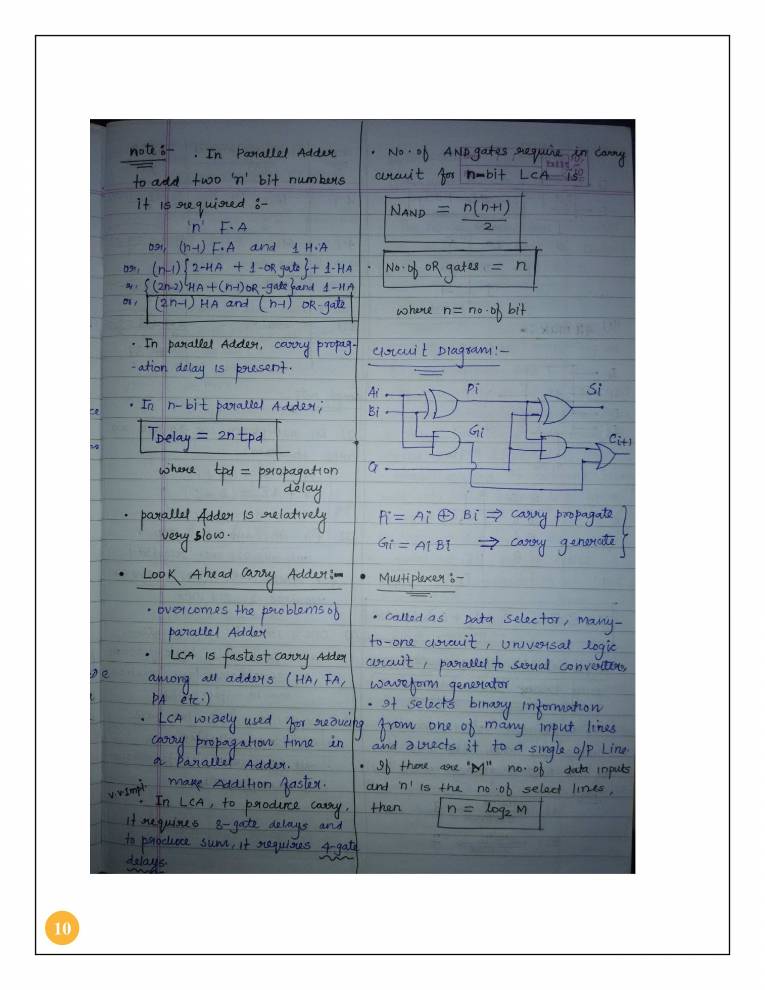 note:- · In Parallel Adder
to add two 'n' bit numbers
it is required :-
'n' F.A
or, (n-1) F.A and 1 H.A
or, (n-1) {2-HA + 1-OR gate} + 1-HA
or, {(2n-2) HA + (n-1) OR-gate} and 1-HA
or, (2n-1) HA and (n-1) OR-gate
· In parallel Adder, carry propag-
-ation delay is present.
· In n-bit parallel Adder;
TDelay = 2n tpd
where tpd = propagation
delay
· parallel Adder is relatively
very slow.
• Look Ahead Carry Adder:-
· overcomes the problems of
parallel Adder
· LCA is fastest carry Adder
among all adders (HA, FA,
PA etc.)
· LCA widely used for reducing
carry propagation time in
a Parallel Adder.
make Addition faster.
v.v.Impt.
· In LCA, to produce carry,
it requires 3-gate delays and
to produce sum, it requires 4-gate
delays.
· No. of AND gates require in carry
circuit for n-bit LCA is
NAND = n(n+1)/2
· No. of OR gates = n
where n = no. of bit
Circuit Diagram:-
Ai
Pi
Si
Bi
Gi
Ci+1
Ci
Pi = Ai ⊕ Bi ⇒ carry propagate
Gi = Ai Bi ⇒ carry generate
• Multiplexer:-
· called as Data selector, many-
to-one circuit, universal logic
circuit, parallel to serial converters,
waveform generator
· It selects binary information
from one of many input lines
and directs it to a single o/p Line.
· If there are "M" no. of data inputs
and 'n' is the no. of select lines,
then n = log2 M
10